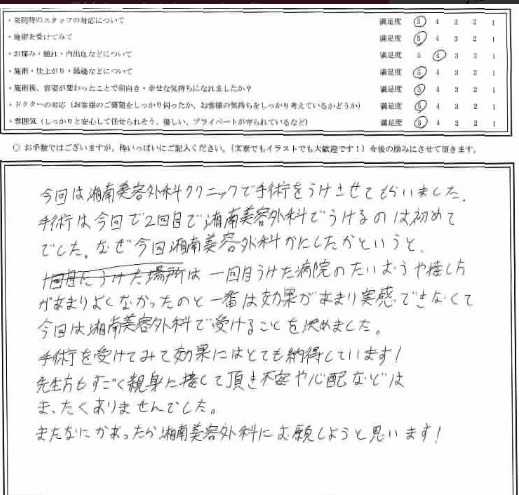 ・来院時のスタッフの対応について 満足度 5 4 3 2 1
・施術を受けてみて 満足度 5 4 3 2 1
・お痛み・腫れ・内出血などについて 満足度 5 4 3 2 1
・施術・仕上がり・経過などについて 満足度 5 4 3 2 1
・施術後、容姿が変わったことで前向き・幸せな気持ちになれましたか? 満足度 5 4 3 2 1
・ドクターの対応(お客様のご要望をしっかり伺ったか、お客様の気持ちをしっかり考えているかどうか) 満足度 5 4 3 2 1
・雰囲気(しっかりと安心して任せられそう、優しい、プライベートが守られているなど) 満足度 5 4 3 2 1
○ お手数ではございますが、枠いっぱいにご記入ください。(文章でもイラストでも大歓迎です!)今後の励みにさせて頂きます。
今回は湘南美容外科クリニックで手術をうけさせてもらいました。
手術は今回で2回目で湘南美容外科でうけるのは初めて
でした。なぜ今回湘南美容外科かにしたかというと、
1回目にうけた場所は一回目うけた病院のたいおうや接し方
があまりよくなかったのと一番は効果があまり実感できなくて
今回は湘南美容外科で受けることを決めました。
手術を受けてみて効果にはとても納得しています!
先生方もすごく親身に接して頂き不安や心配などは
まったくありませんでした。
またなにかあったら湘南美容外科にお願しようと思います!